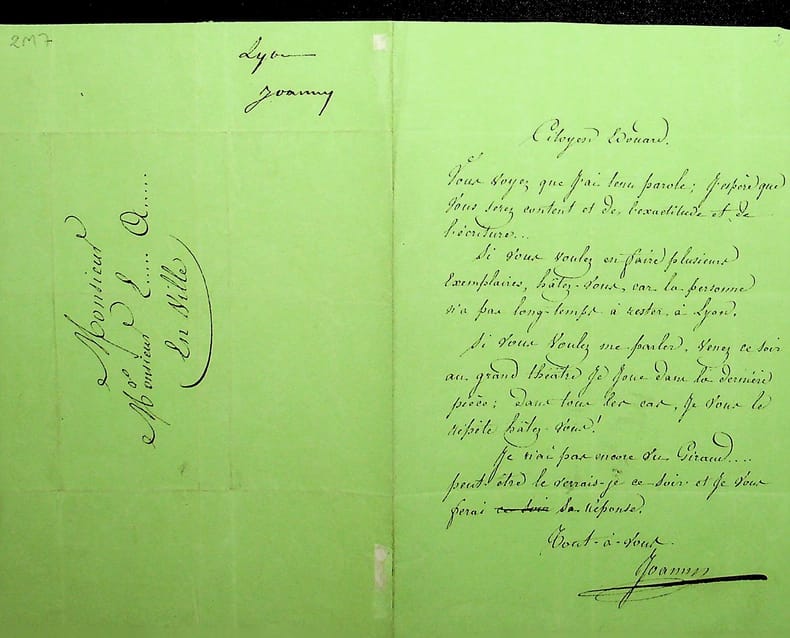 2M7
Lyon
Joanny
Monsieur
Monsieur E..... A.....
En Ville
2
Citoyen Edouard.
Vous voyez que J'ai tenu parole; J'espère que
Vous serez content et de l'exactitude et de
l'écriture...
Si Vous Voulez en faire plusieurs
Exemplaires, hâtez-Vous, car la personne
n'a pas long-temps à rester à Lyon.
Si Vous Voulez me parler, Venez ce soir
au grand théâtre Je Joue dans la dernière
pièce; dans tous les cas, Je Vous le
répète hâtez-Vous!
Je n'ai pas encore vu Giraud....
peut-être le verrais-je ce soir et Je Vous
ferai ce soir sa réponse.
Tout-à-vous
Joanny